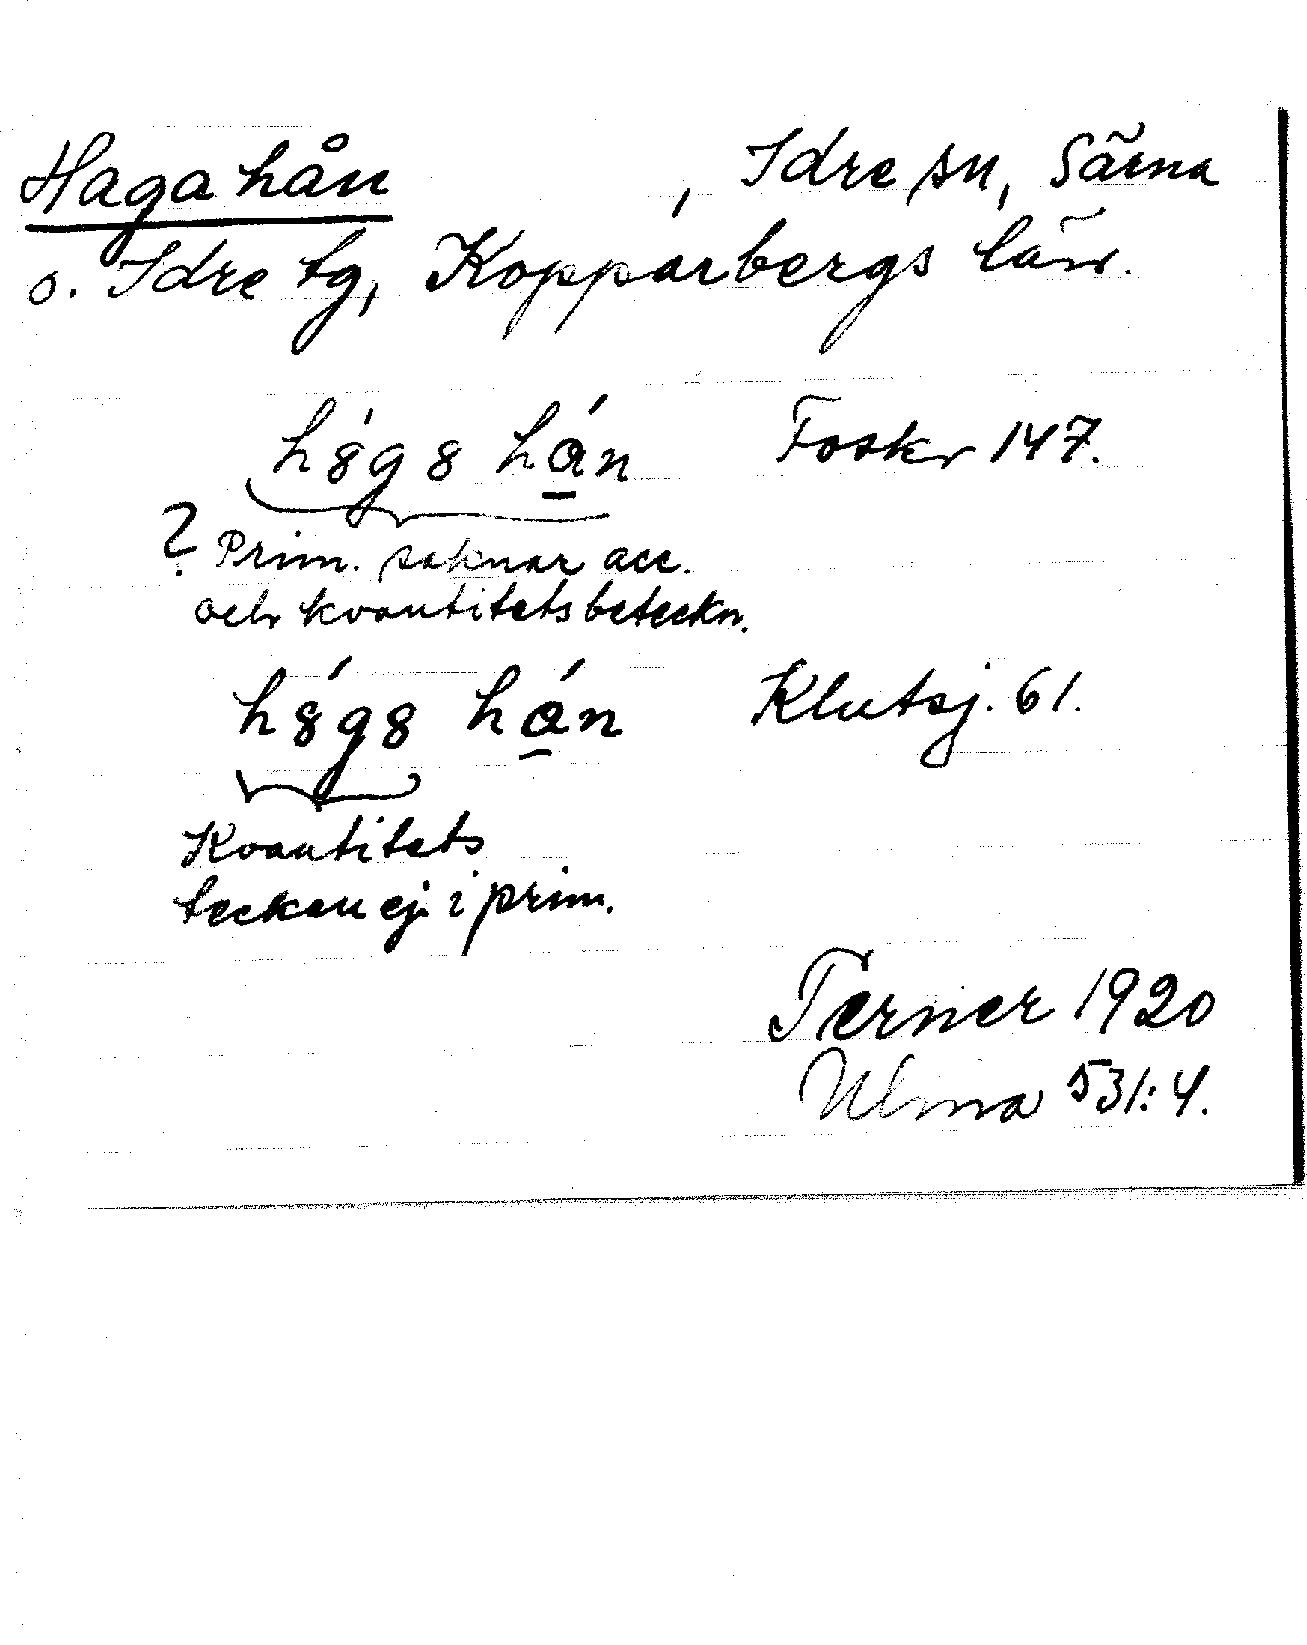 Hagahån , Idre sn, Särna
o. Idre tg, Kopparbergs län.
h8́g8 hán Foskr 147.
? Prim. saknar acc.
och kvantitetsbeteckn.
h8́g8 hán Klutsj. 61.
Kvantitets
tecken ej i prim.
Terner 1920
Ulma 531:4.